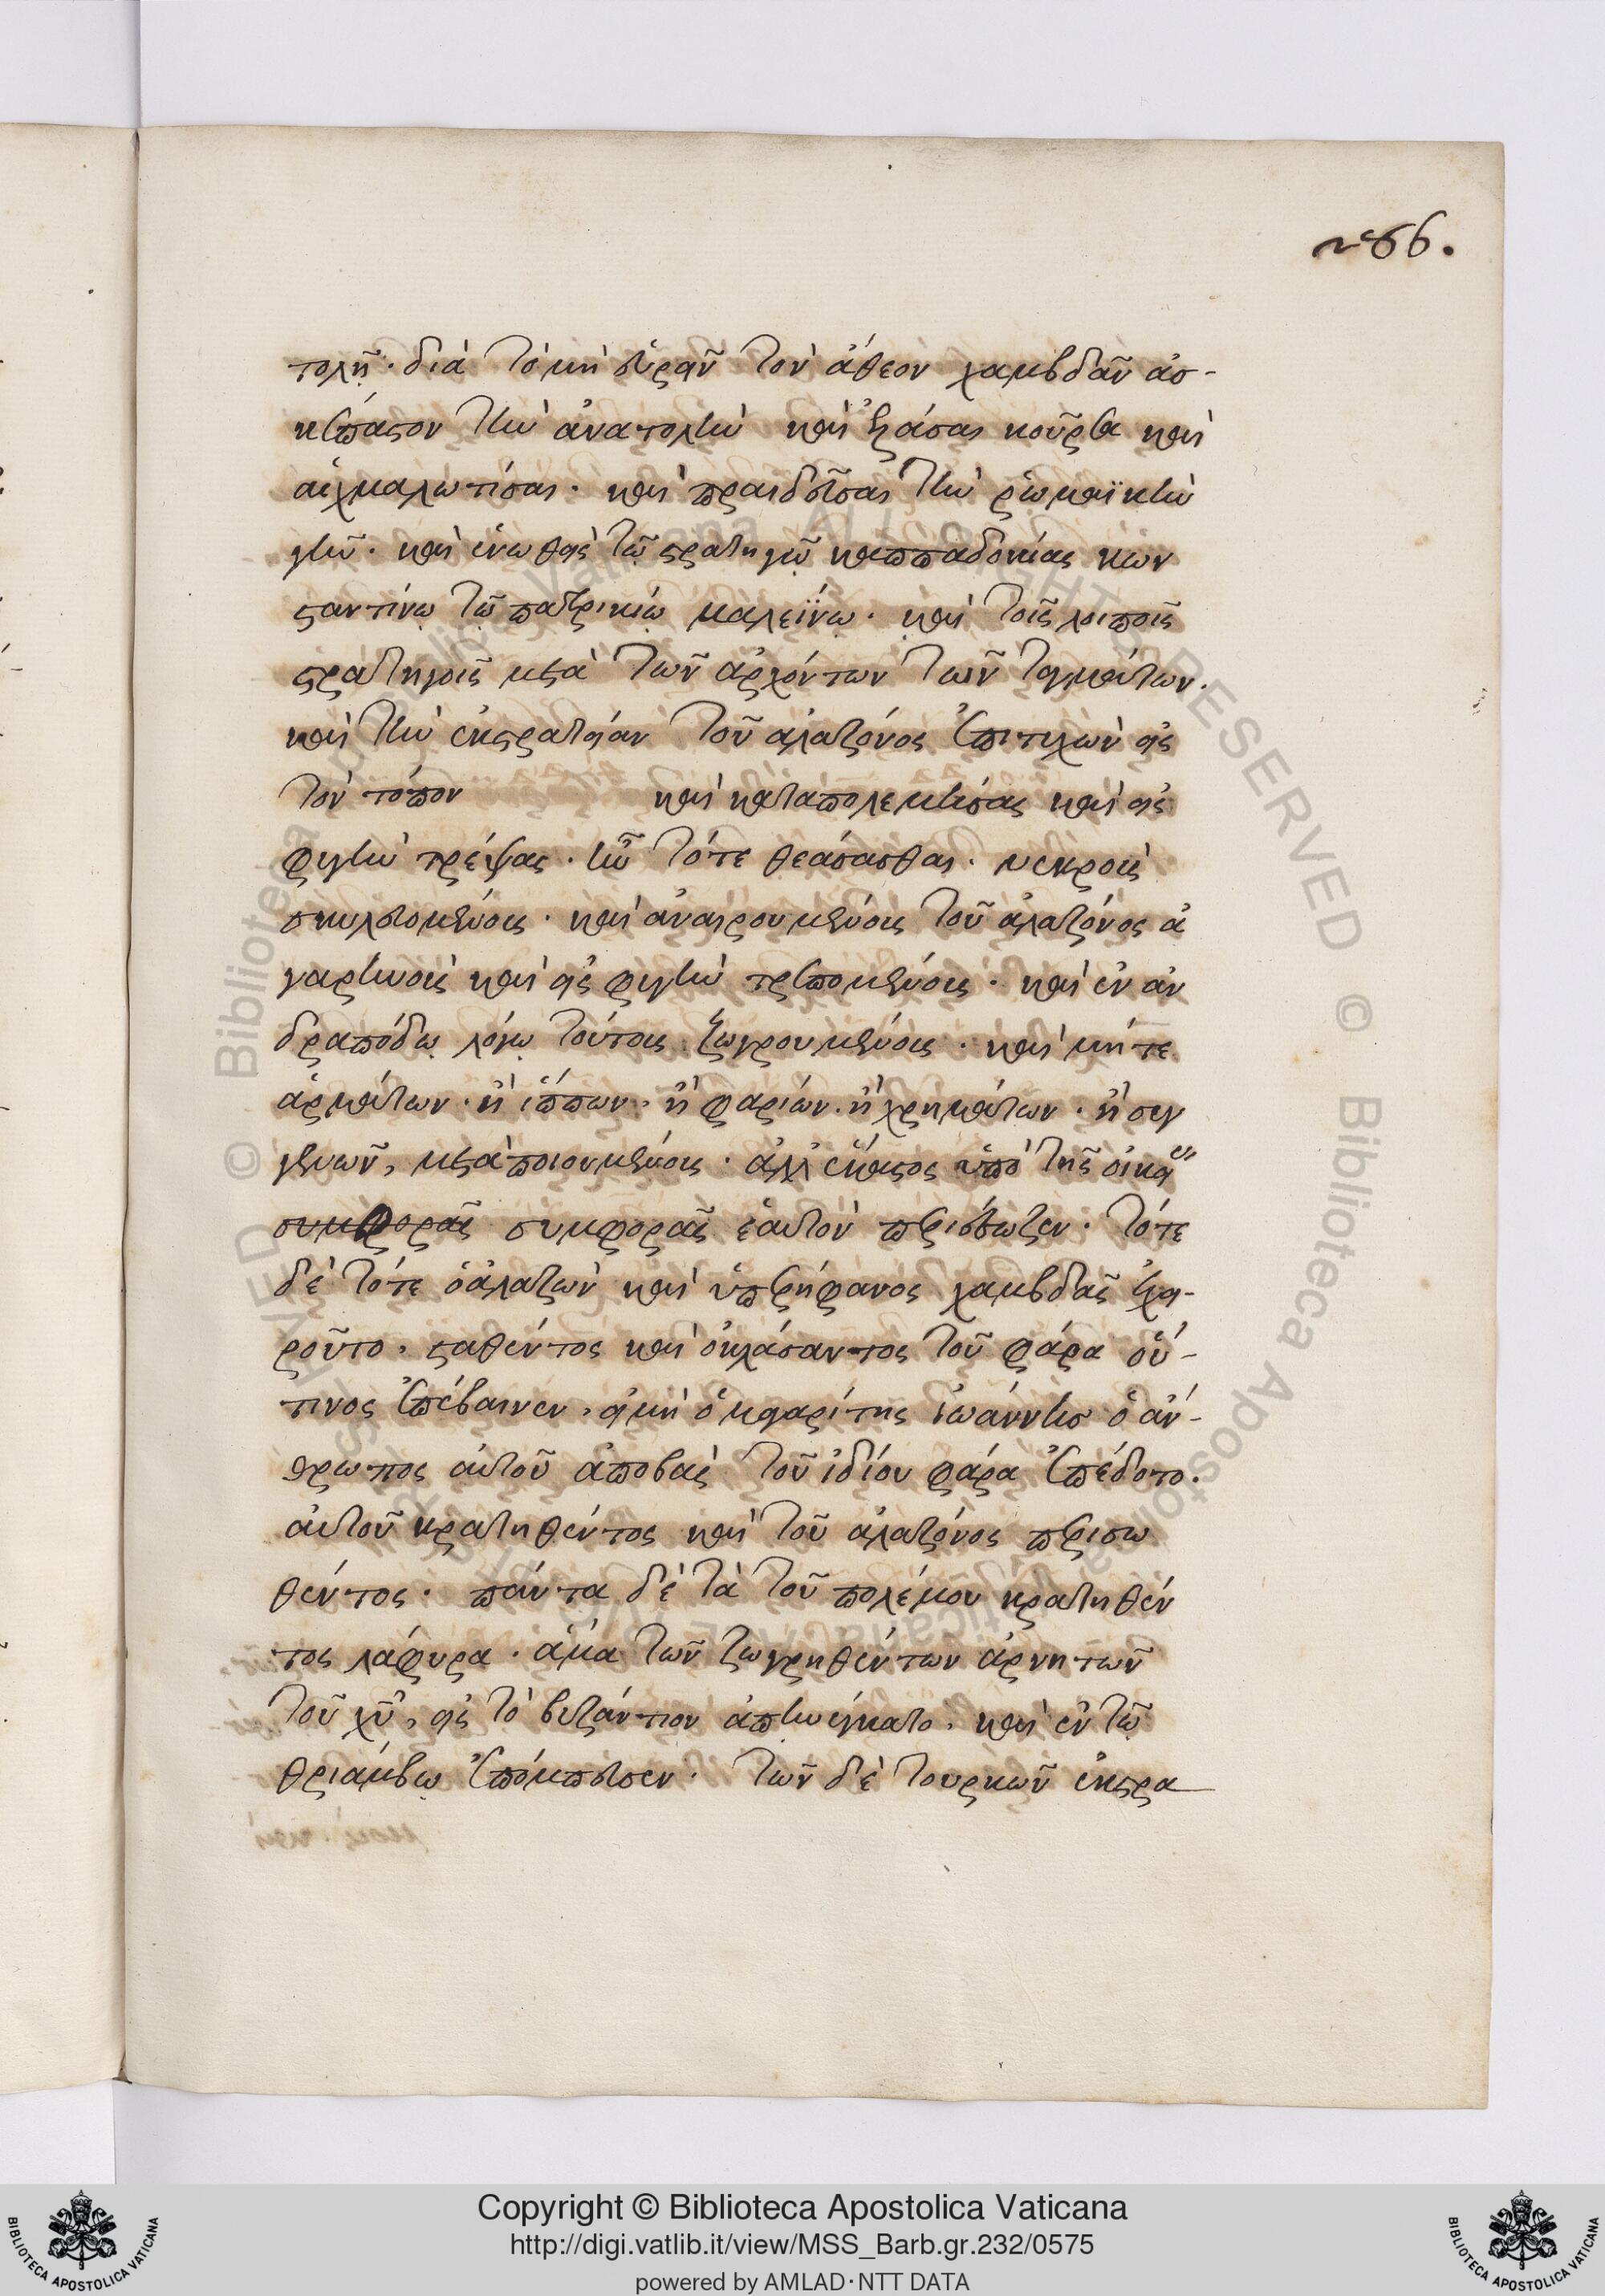 286.
τολῇ· διὰ τὸ μὴ εὑρεῖν τὸν ἄθεον χαμβδᾶν ἀσ-
κέπαστον τὴν ἀνατολὴν καὶ ἐξάσαι κοῦρσα καὶ
αἰχμαλωτίσαι· καὶ πραιδεῦσαι τὴν ῥωμαϊκὴν
γῆν· καὶ ἑνωθεὶς τῷ στρατηγῷ καππαδοκίας κων
σταντίνῳ τῷ πατρικίῳ μαλεΐνῳ· καὶ τοῖς λοιποῖς
στρατηγοῖς μετὰ τῶν ἀρχόντων τῶν ταγμάτων.
καὶ τὴν ἐκστρατείαν τοῦ ἀλαζόνος ἐπιτυχὼν εἰς
τὸν τόπον καὶ καταπολεμήσας καὶ εἰς
φυγὴν τρέψας· ἦν τότε θεάσασθαι· νεκροὺς
σκυλευομένους· καὶ ἀναιρουμένους τοῦ ἀλαζόνος ἀ
γαρηνοὺς καὶ εἰς φυγὴν τρεπομένους· καὶ ἐν ἀν
δραπόδῳ λόγῳ τούτοις ζωγρουμένους· καὶ μήτε
ἁρμάτων· ἢ ἵππων· ἢ φαρίων· ἢ χρημάτων· ἢ συγ
γενῶν, μεταποιουμένους· ἀλλ' ἕκαστος ὑπὸ τῆς οἰκεί
συμφορᾶς συμφορᾶς ἑαυτὸν περιέσωζεν· τότε
δὲ τότε ὁ ἀλαζὼν καὶ ὑπερήφανος χαμβδᾶς ἐχει-
ροῦτο, σταθέντος καὶ ὀκλάσαντος τοῦ φάρα οὗ-
τινος ἐπέβαινεν, εἰ μὴ ὁ μαγαρίτης ἰωάννης ὁ ἄν-
θρωπος αὐτοῦ ἀποβὰς τοῦ ἰδίου φάρα ἐπέδοτο.
αὐτοῦ κρατηθέντος καὶ τοῦ ἀλαζόνος περισω
θέντος· πάντα δὲ τὰ τοῦ πολέμου κρατηθέν
τος λάφυρα· ἅμα τῶν ζωγρηθέντων ἀρνητῶν
τοῦ χυ, εἰς τὸ βυζάντιον ἀπηνέγκατο, καὶ ἐν τῷ
θριάμβῳ ἐπόμπευσεν· τῶν δὲ τουρκῶν ἐκστρα
© Biblioteca Apostolica Vaticana ALL RIGHTS RESERVED © Biblioteca Apostolica Vaticana ALL RIGHTS RESERVED
BIBLIOTECA APOSTOLICA VATICANA
Copyright © Biblioteca Apostolica Vaticana
http://digi.vatlib.it/view/MSS_Barb.gr.232/0575
powered by AMLAD·NTT DATA
BIBLIOTECA APOSTOLICA VATICANA